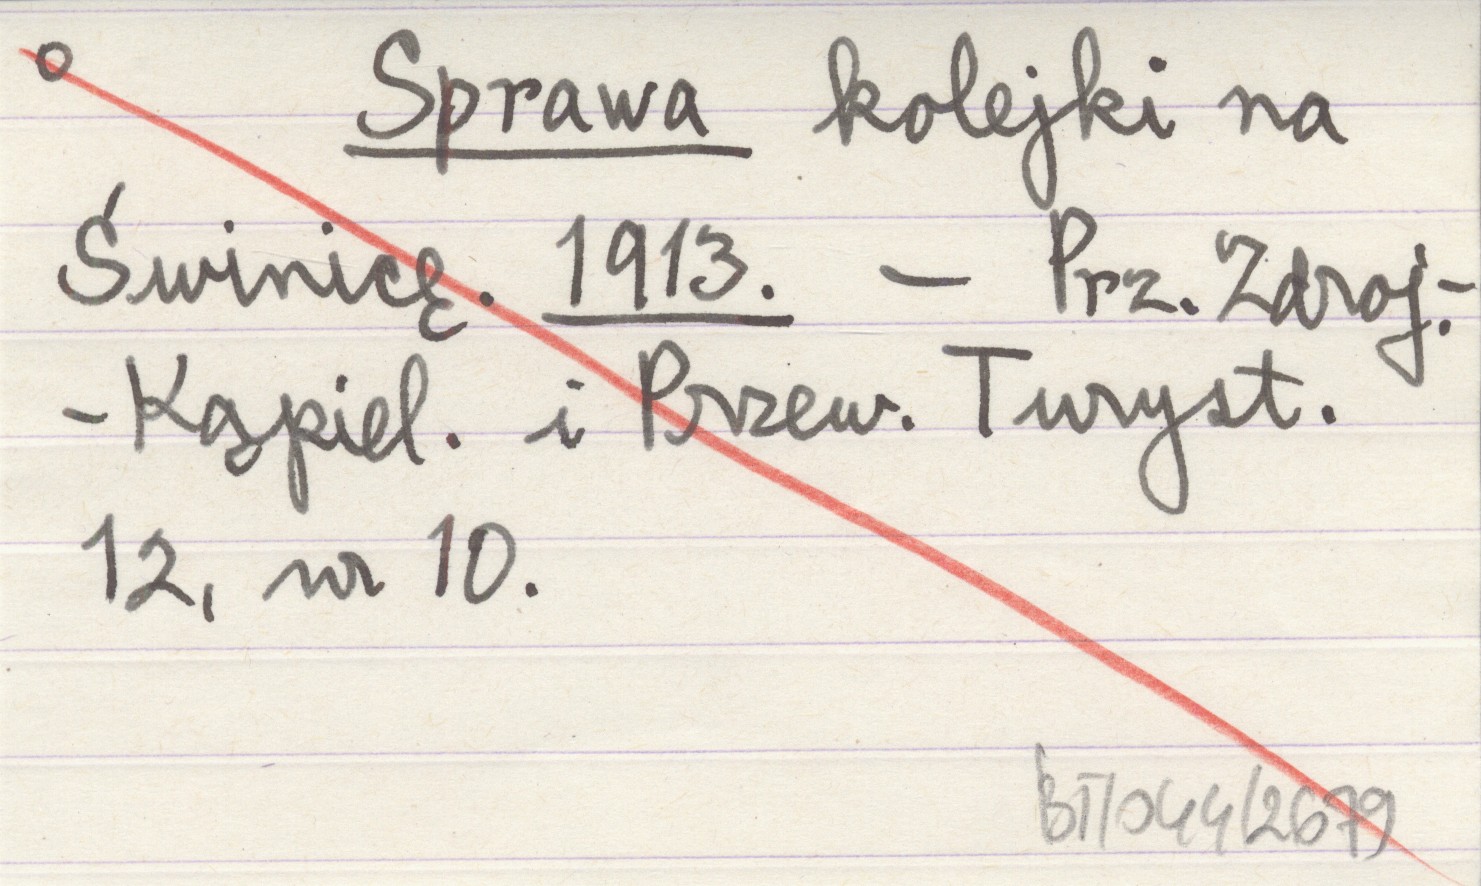 o Sprawa kolejki na
Świnicę. 1913. — Prz. Zdroj.-
-Kąpiel. i Przew. Turyst.
12, nr 10.
BT/044/2679